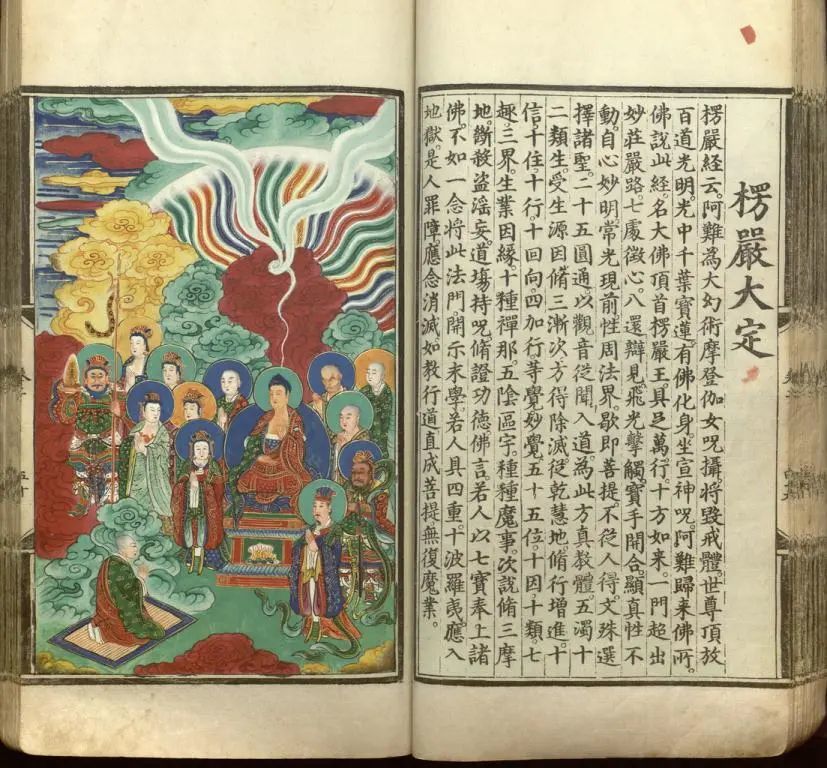 楞嚴大定
楞嚴經云。阿難為大幻術摩登伽女呪攝。將毀戒體。世尊頂放
百道光明。光中千葉寶蓮。有佛化身。坐宣神呪。阿難歸來佛所。
佛說此經。名大佛頂首楞嚴王。具足萬行。十方如來。一門超出
妙莊嚴路。七處徵心。八還辯見。飛光擊觸。寶手開合。顯真性不
動。自心妙明。常光現前。性周法界。歇即菩提。不從人得。文殊選
擇諸聖。二十五圓通。以觀音從聞入道。為此方真教體。五濁十
二類生。受生源因。脩三漸次。方得除滅。從乾慧地。脩行增進。十
信十住。十行。十回向。四加行。等覺。妙覺。五十五位。十因十類。七
趣三界。生業因緣。十種禪那。五陰區宇。種種魔事。次說脩三摩
地。斷殺盜婬妄。道場持呪。脩證功德。佛言。若人以七寶奉上諸
佛。不如一念將此法門。開示末學。若人具四重。十波羅夷。應入
地獄。是人罪障。應念消滅。如教行道。直成菩提。無復魔業。